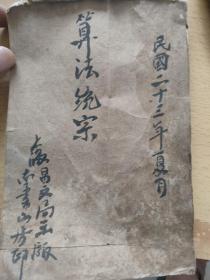 民國二十三年夏月
算法統宗
上海昌文局石版
南書山房印